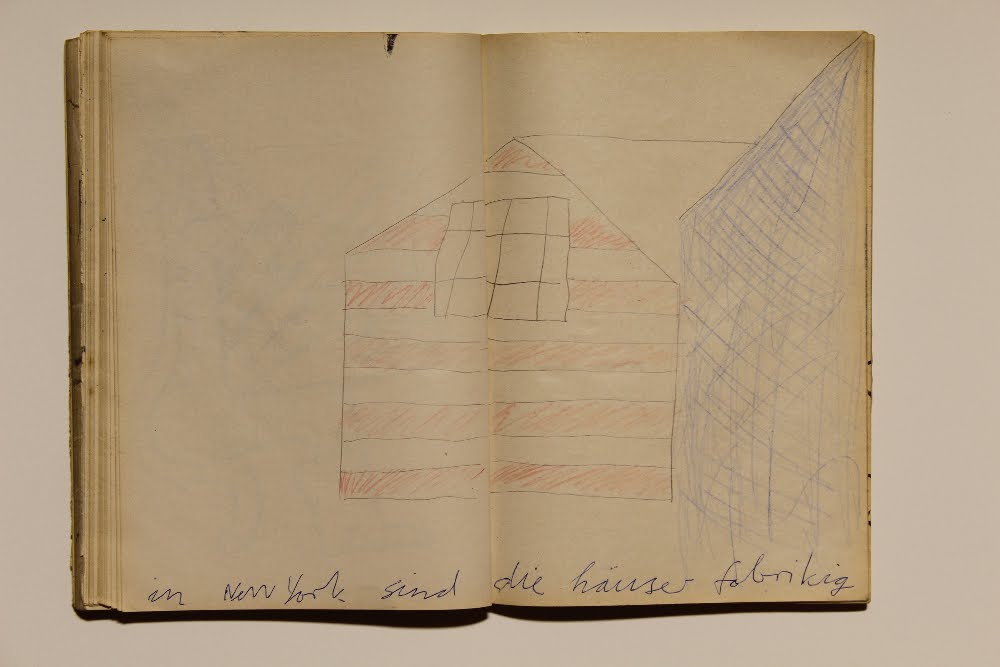 in New York sind die häuser fabrikig